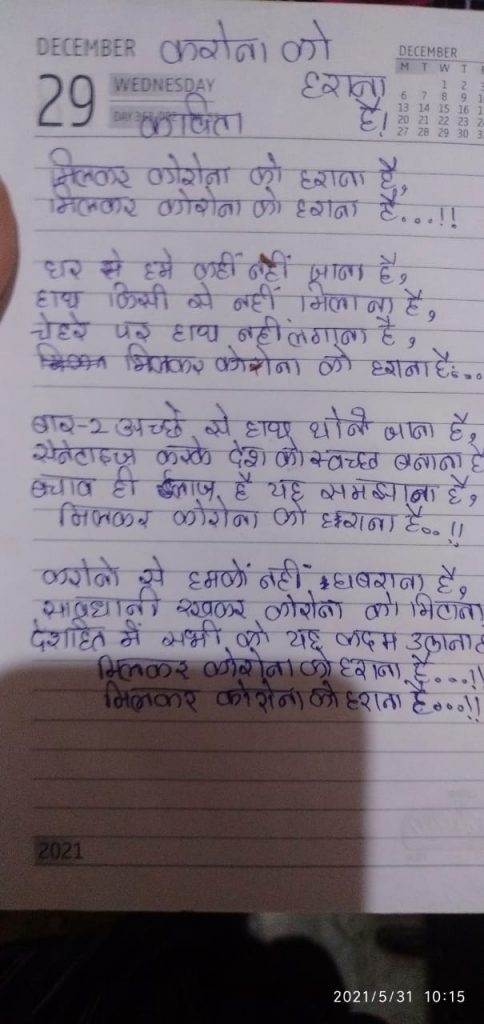 DECEMBER करोना को
DECEMBER
29 WEDNESDAY हराना
M T W T F
कविता है!
1 2 3
6 7 8 9 10
13 14 15 16
20 21 22 23
27 28 29 30
मिलकर कोरोना को हराना है,
मिलकर कोरोना को हराना है...!!
घर से हमे कहीं नहीं जाना है,
हाथ किसी से नहीं मिलाना है,
चेहरे पर हाथ नहीं लगाना है,
मिलकर कोरोना को हराना है...
बार-२ अच्छे से हाथ धोने जाना है,
सेनेटाइज करके देश को स्वच्छ बनाना है
बचाव ही ईलाज है यह समझाना है,
मिलकर कोरोना को हराना है..!!
करोनो से हमको नहीं घबराना है,
सावधानी रखकर कोरोना को मिटाना
देशहित में सभी को यह कदम उठाना है
मिलकर कोरोना को हराना है....!!
मिलकर कोरोना को हराना है...!!
2021
2021/5/31 10:15